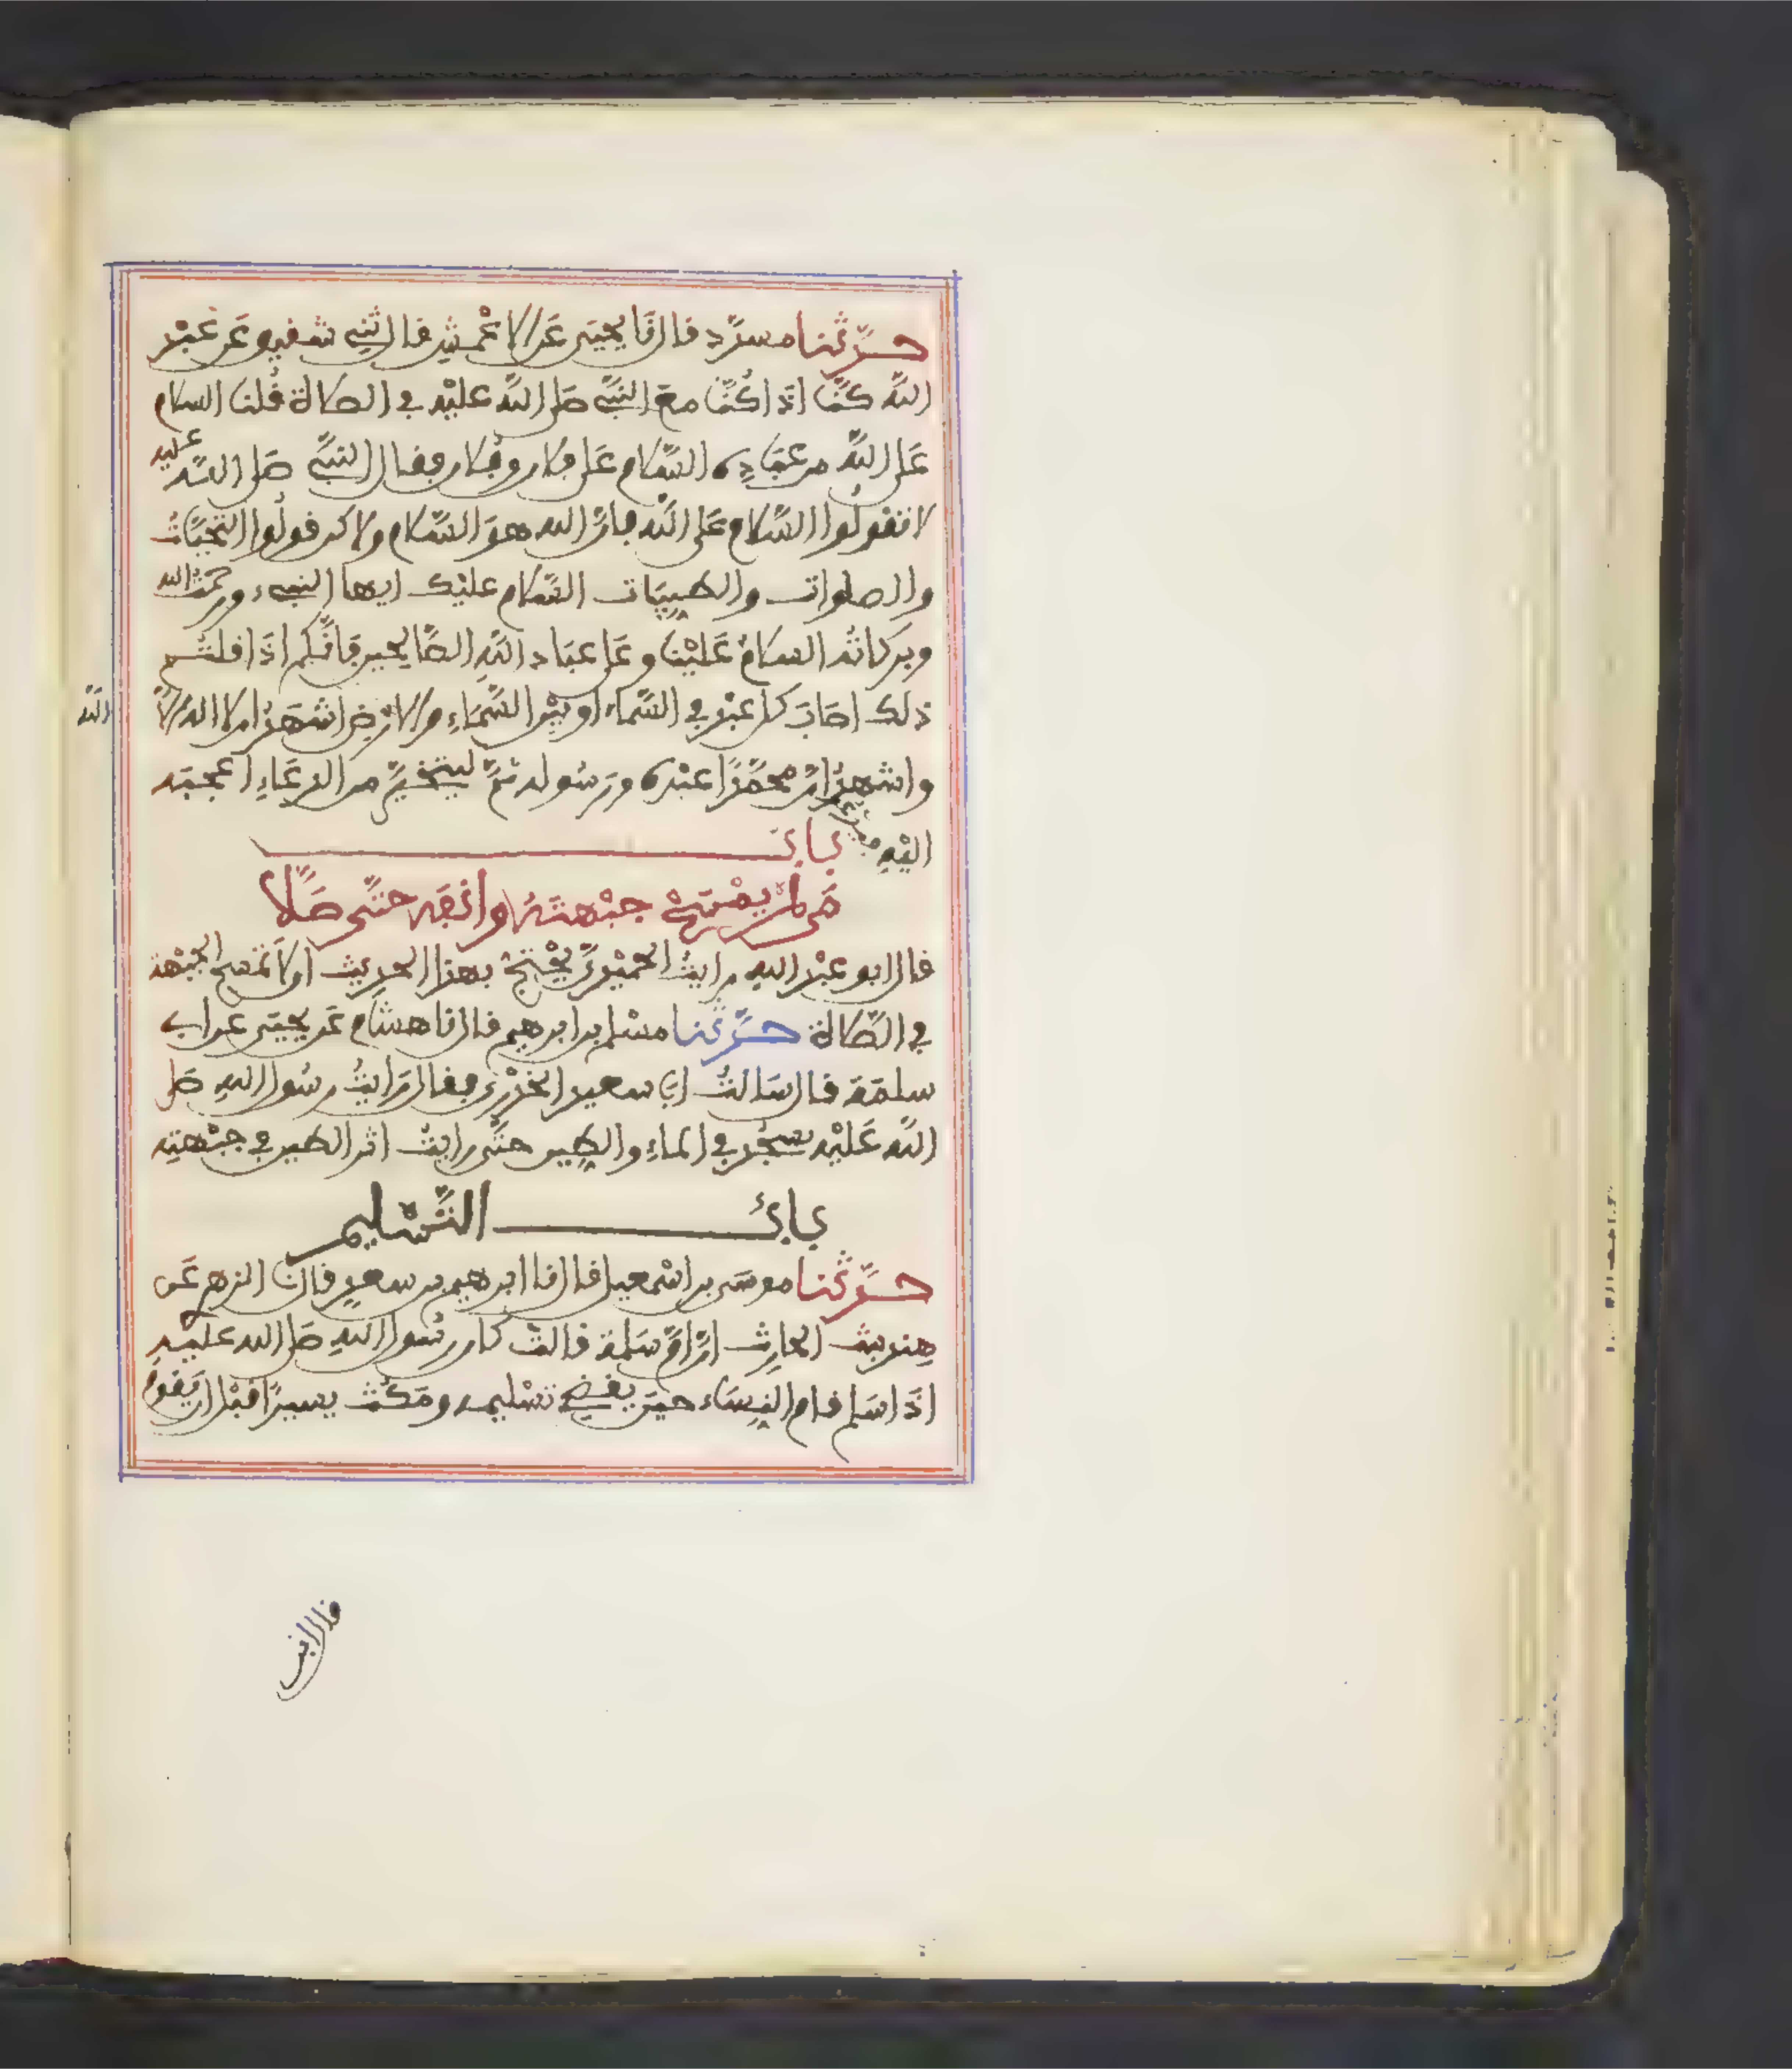 حدثنا مسدد قال نا يحيى عن الاعمش قال ثني شقيق عن عبد
الله كنا اذا كنا مع النبي صلى الله عليه في الصلاة قلنا السلام
على الله من عباده السلام على فلان وفلان فقال النبي صلى الله عليه
لا تقولوا السلام على الله فان الله هو السلام ولاكن قولوا التحيات
والصلوات والطيبات السلام عليك ايها النبيء ورحمت الله
وبركاته السلام علينا وعلى عباد الله الصالحين فانكم اذا قلتم
ذلك اصاب كل عبد في السماء او بين السماء والارض اشهد ان لا اله الا
الله
واشهد ان محمدا عبده ورسوله ثم ليتخير من الدعاء اعجبه
اليه باب
من لم يمسح جبهته وانفه حتى صلا
قال ابو عبد الله رايت الحميدي يحتج بهذا الحديث الا تمسح الجبهة
في الصلاة حدثنا مسلم بن ابرهيم قال نا هشام عن يحيى عن ابي
سلمة قال سالت ابا سعيد الخدري فقال رايت رسول الله صلى
الله عليه يسجد في الماء والطين حتى رايت اثر الطين في جبهته
باب التسليم
حدثنا موسى بن اسمعيل قال نا ابرهيم بن سعد قال نا الزهر عن
هند بنت الحارث ان ام سلمة قالت كان رسول الله صلى الله عليه
اذا سلم قام النساء حين يقضي تسليمه ومكث يسيرا قبل ان يقوم
قال ابن